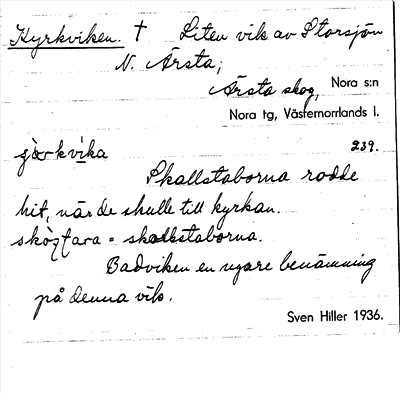 Kyrkviken. † Liten vik av Storsjön
N. Årsta;
Årsta skog, Nora s:n
Nora tg, Västernorrlands l.
239.
Skallstaborna rodde
hit, när de skulle till kyrkan.
= skallstaborna.
Badviken en nyare benämning
på denna vik.
Sven Hiller 1936.